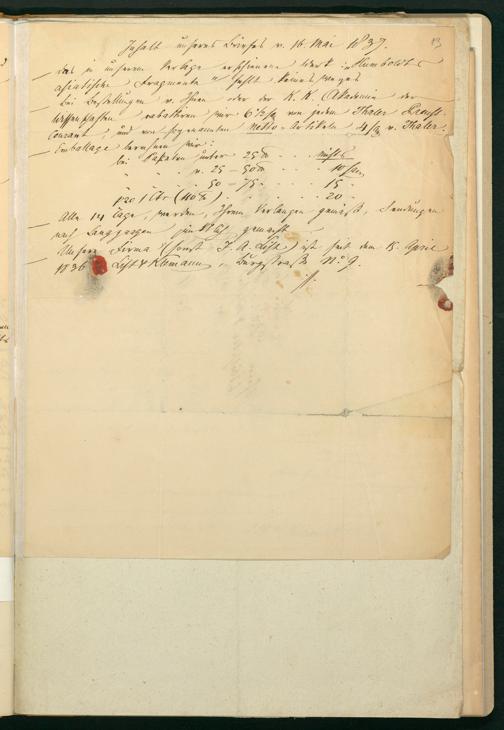 13
Inhalt unseres Briefes v. 16. Mai 1837.
das in unserem Verlage erschienene Werk „Humboldt
asiatische Fragmente" fehlt keineswegs
bei Bestellungen v. Ihnen oder der K. K. Akademie der
Wissenschaften rabattiren wir 6 1/2 Sg von jedem Thaler Preuß.
Courant, und von sogenannten Netto-Artikeln 4 Sg v. Thaler.
Emballage berechnen wir:
bei Paketen unter 25 ℔ . . . nichts
" " v. 25 – 50 ℔ . . . 10 Sgr
" " 50 – 75 " . . . 15 "
1 Ctr (110 ℔) . . . 20 "
Alle 14 Tage, werden, Ihrem Verlangen gemäß, Sendungen
nach gemacht
Unsere Firma (sonst J. A. List) ist seit dem 15. April
1836 List & Klemann, Burgstraße No. 9.